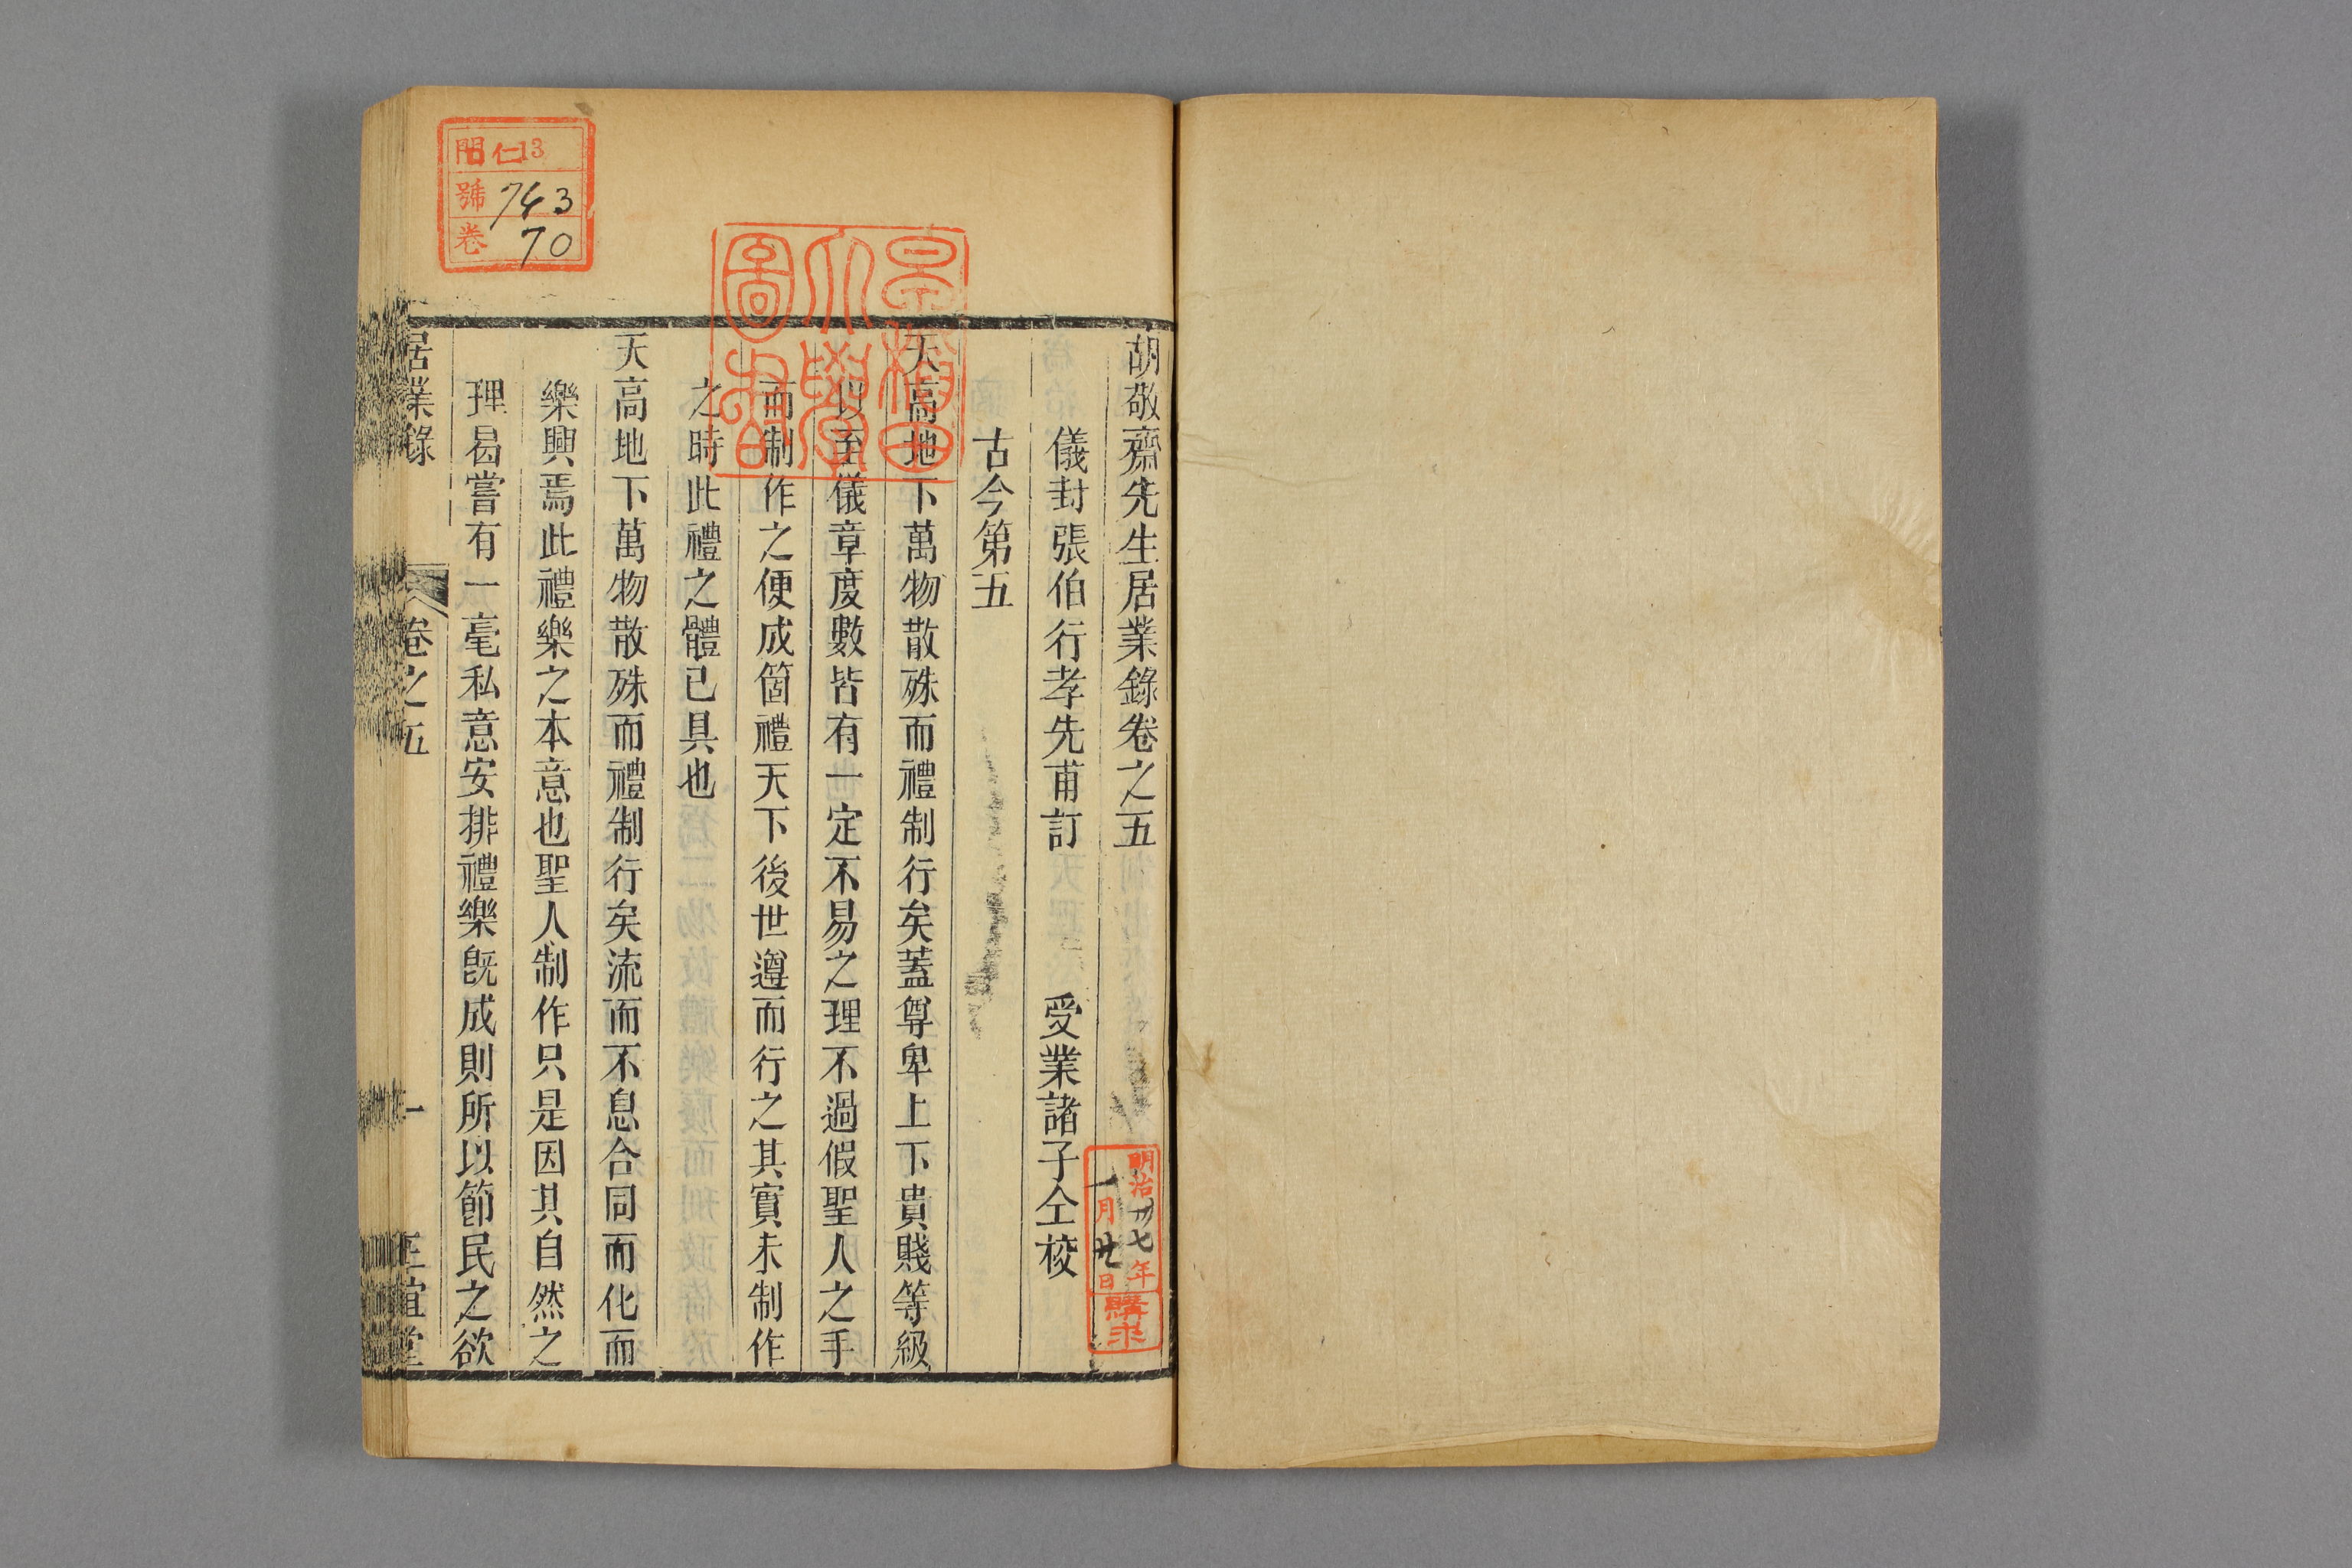 胡敬齋先生居業錄卷之五
儀封張伯行孝先甫訂　受業諸子仝校
古今第五
天高地下萬物散殊而禮制行矣蓋尊卑上下貴賤等級
以至儀章度數皆有一定不易之理不過假聖人之手
而制作之便成箇禮天下後世遵而行之其實未制作
之時此禮之體已具也
天高地下萬物散殊而禮制行矣流而不息合同而化而
樂興焉此禮樂之本意也聖人制作只是因其自然之
理曷嘗有一毫私意安排禮樂旣成則所以節民之欲
居業錄　卷之五　一　正誼堂
早稻田
大學
圖書
門 仁 13
號 763
卷 70
明治卅七年
一月廿日
購求